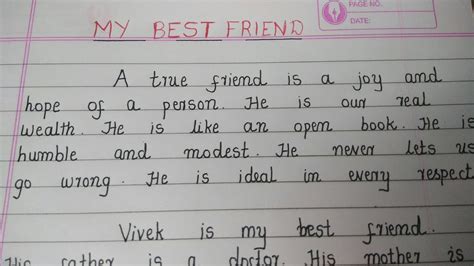 PAGE NO.
DATE:
MY BEST FRIEND
A true friend is a joy and
hope of a person. He is our real
wealth. He is like an open book. He is
humble and modest. He never lets us
go wrong. He is ideal in every respect
Vivek is my best friend.
His father is a doctor. His mother is